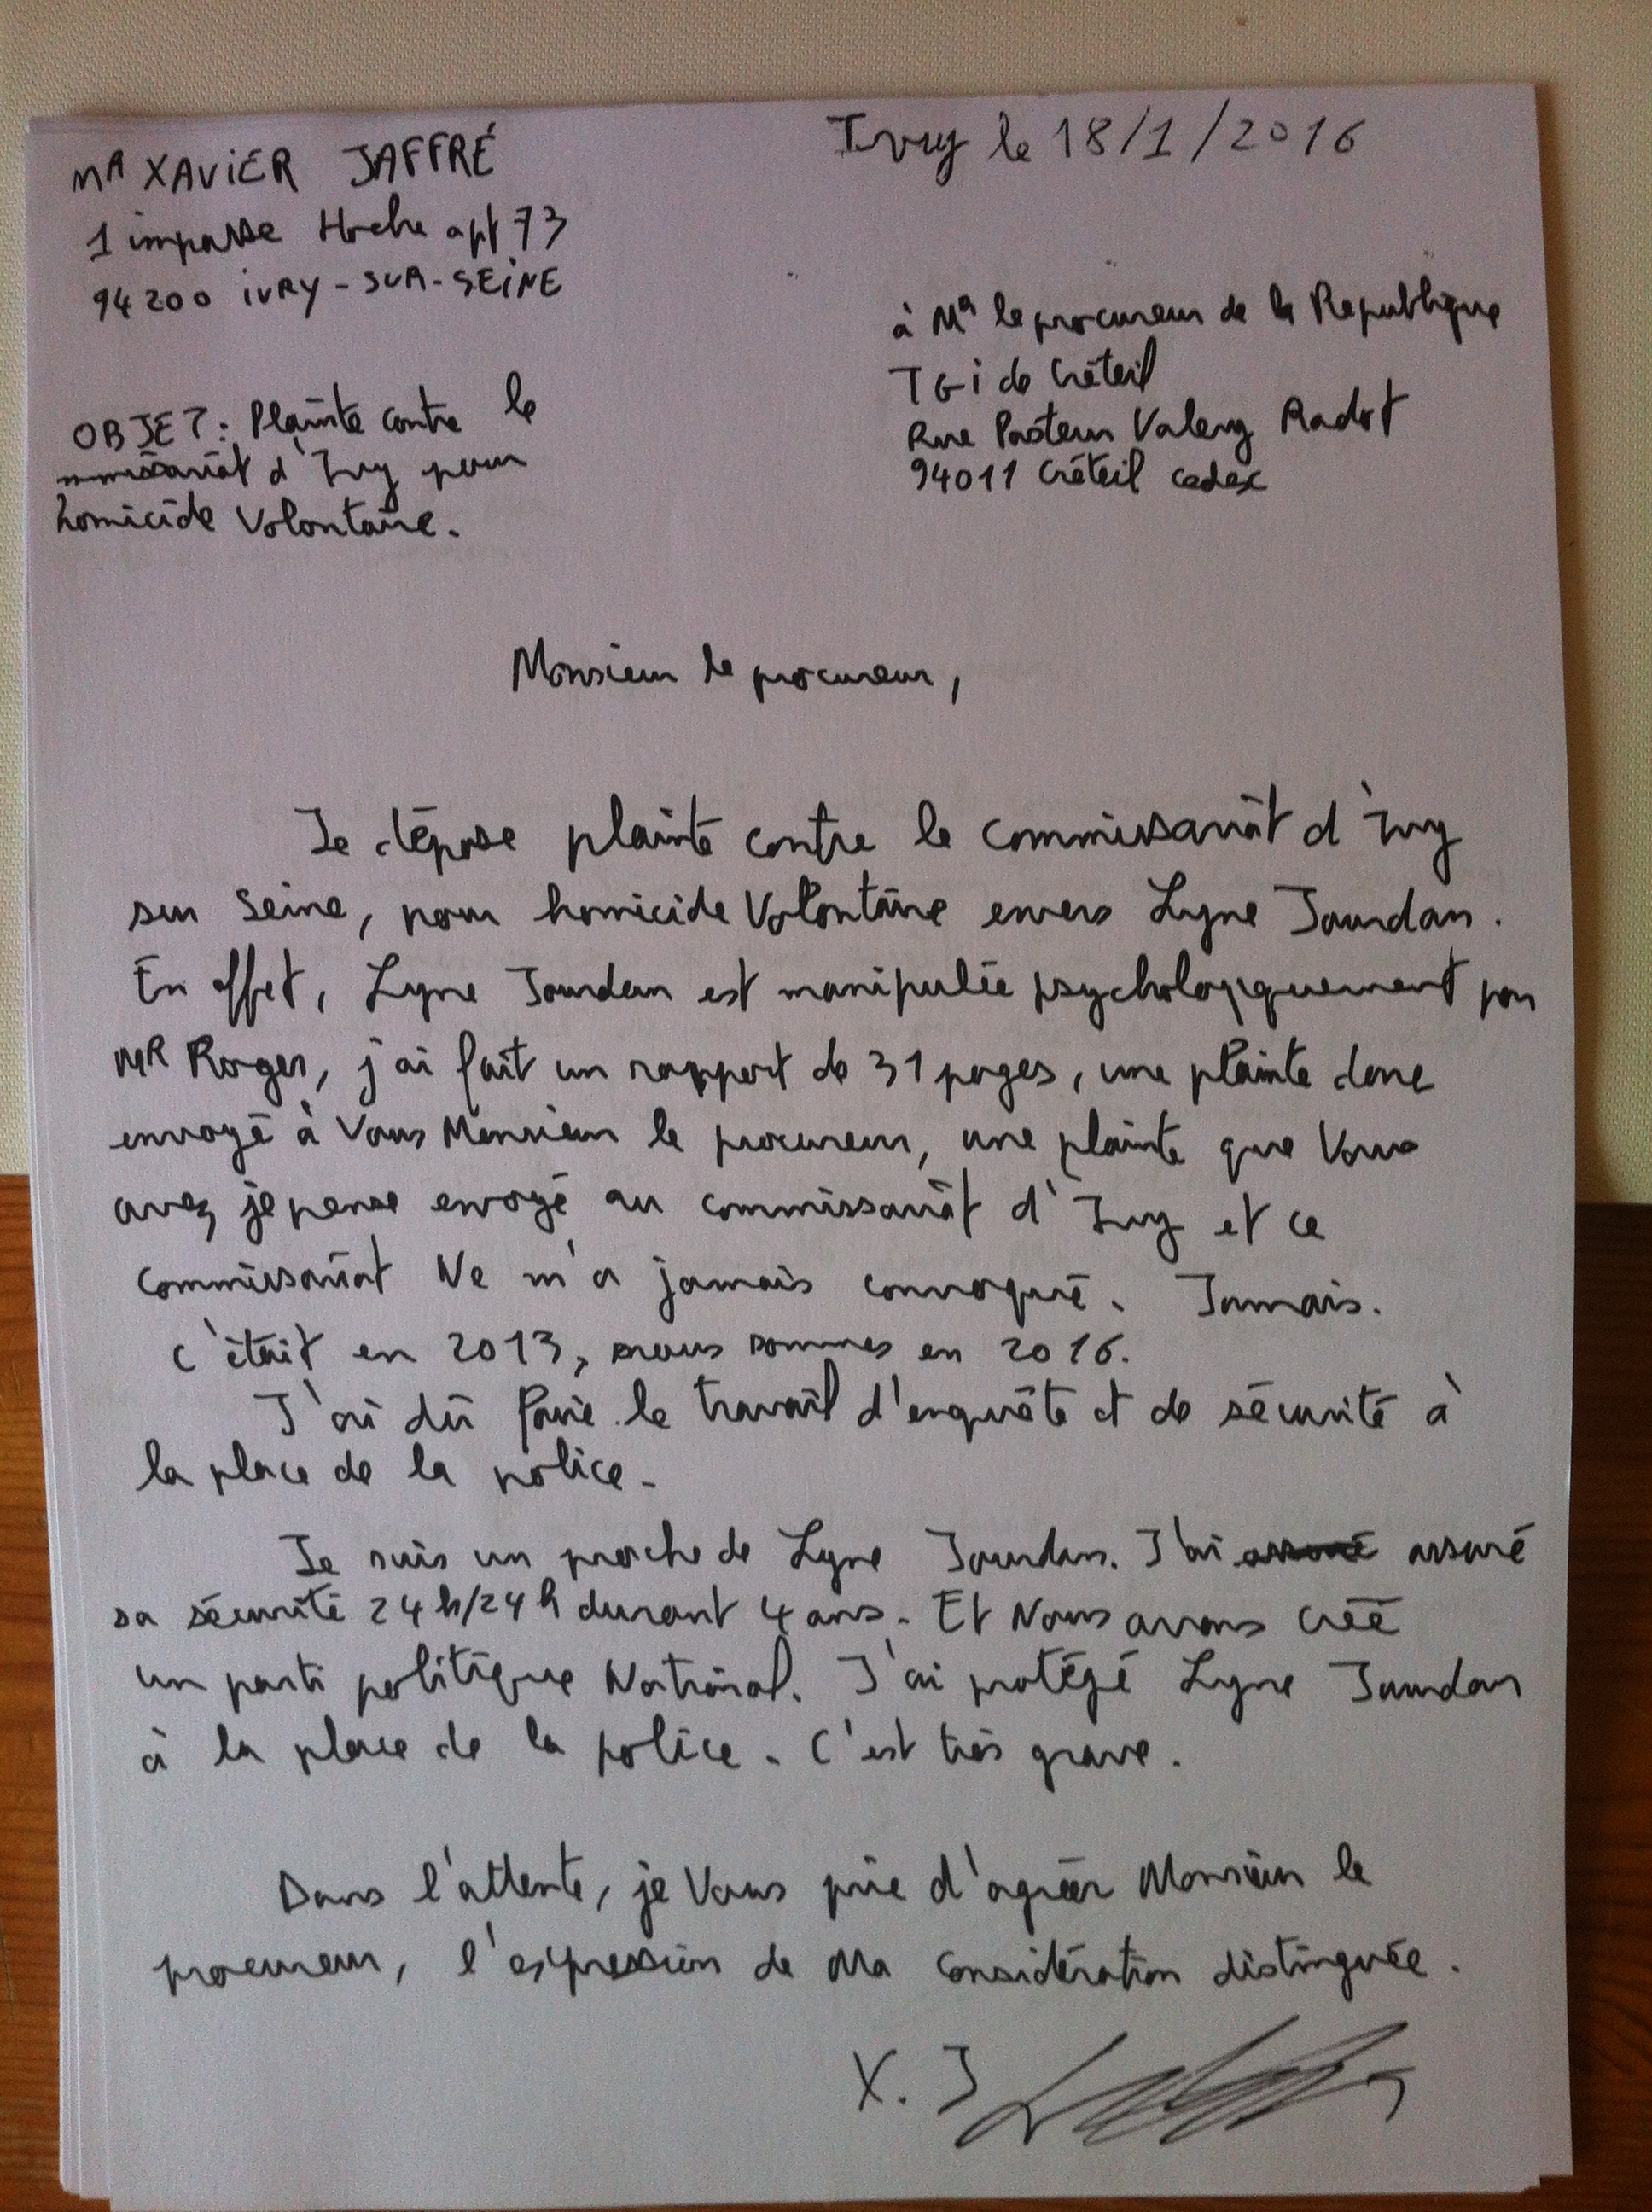 MR XAVIER JAFFRÉ
1 impasse Hoche apt 73
94200 IVRY-SUR-SEINE
Ivry le 18/1/2016
à MR le procureur de la Republique
TGI de Créteil
Rue Pasteur Valery Radot
94011 Créteil cedex
OBJET: Plainte contre le
commissariat d'Ivry pour
homicide Volontaire.
Monsieur le procureur,
Je dépose plainte contre le commissariat d'Ivry
sur Seine, pour homicide Volontaire envers Lyne Jourdan.
En effet, Lyne Jourdan est manipulée psychologiquement par
MR Roger, j'ai fait un rapport de 31 pages, une plainte donc
envoyé à Vous Monsieur le procureur, une plainte que Vous
avez je pense envoyé au commissariat d'Ivry et ce
commissariat Ne m'a jamais convoqué. Jamais.
C'était en 2013, nous sommes en 2016.
J'ai dû faire le travail d'enquête et de sécurité à
la place de la police.
Je suis un proche de Lyne Jourdan. J'ai assuré
sa sécurité 24h/24h durant 4 ans. Et Nous avons créé
un parti politique National. J'ai protégé Lyne Jourdan
à la place de la police. C'est très grave.
Dans l'attente, je Vous prie d'agréer Monsieur le
procureur, l'expression de Ma Considération distinguée.
X. J